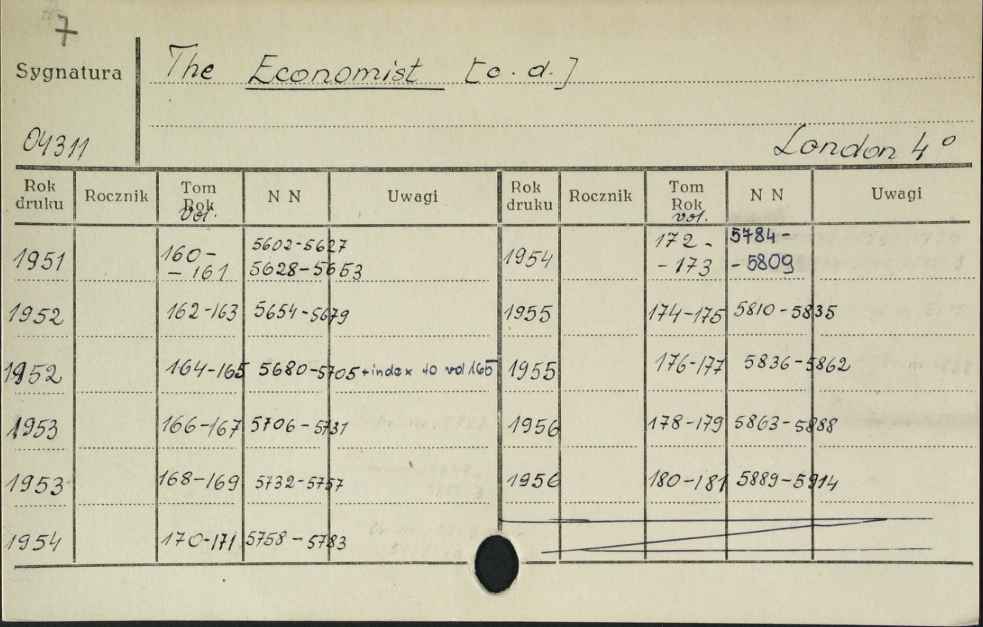 7
Sygnatura The Economist [c.d.]
04311 London 4°
Rok druku Rocznik Tom Rok vol. N N Uwagi Rok druku Rocznik Tom Rok vol. N N Uwagi
1951 160- -161 5602-5627 5628-5653 1954 172- -173 5784- -5809
1952 162-163 5654-5679 1955 174-175 5810-5835
1952 164-165 5680-5705 +index do vol 165 1955 176-177 5836-5862
1953 166-167 5706-5731 1956 178-179 5863-5888
1953 168-169 5732-5757 1956 180-181 5889-5914
1954 170-171 5758-5783